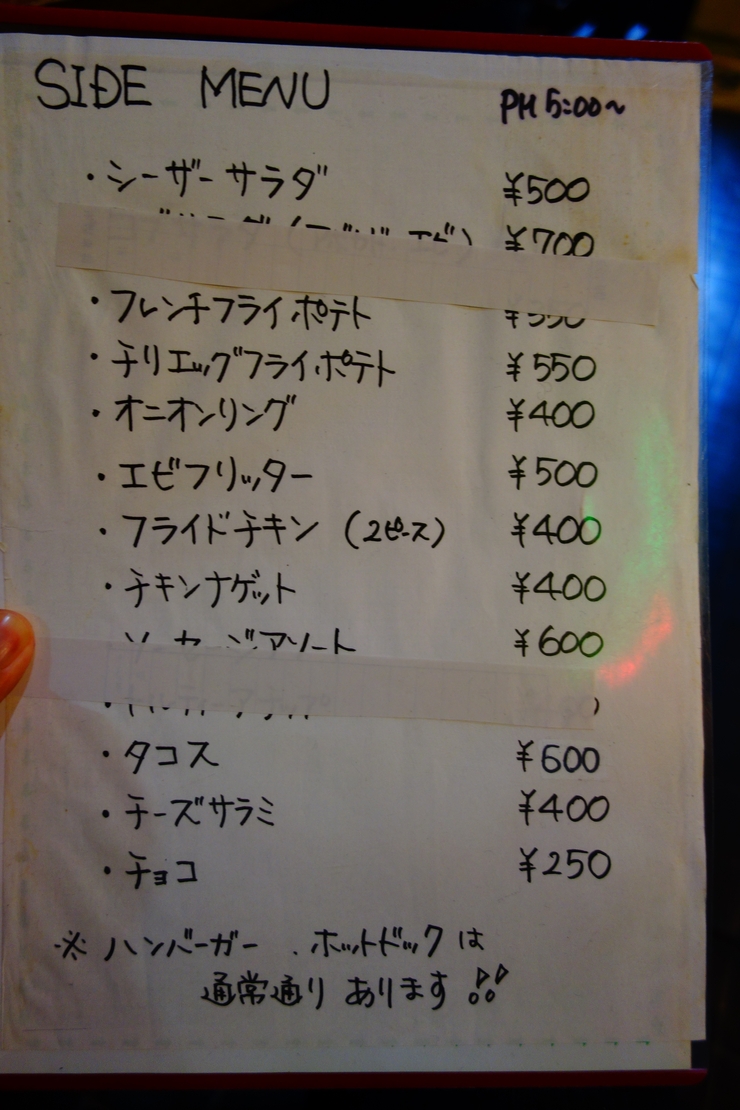 SIDE MENU PM 5:00~
・シーザーサラダ ¥500
¥700
・フレンチフライポテト
・チリエッグフライポテト ¥550
・オニオンリング ¥400
・エビフリッター ¥500
・フライドチキン (2ピース) ¥400
・チキンナゲット ¥400
ソーセージアソート ¥600
・タコス ¥600
・チーズサラミ ¥400
・チョコ ¥250
※ ハンバーガー 、ホットドックは
通常通り あります!!